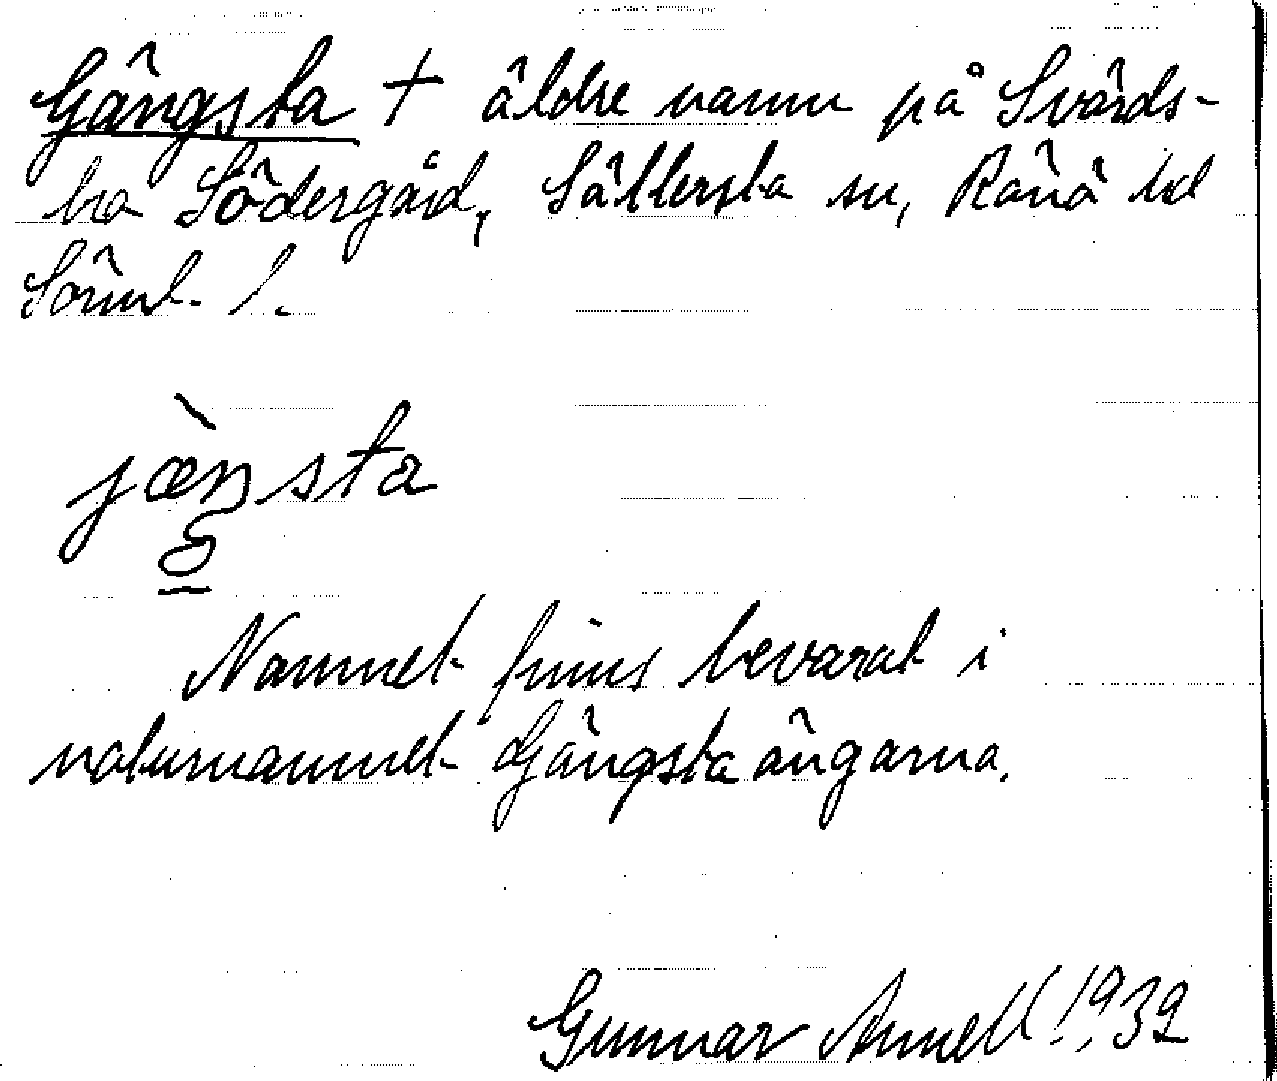 Gängsta † äldre namn på Svärds-
bro Södergård, Sättersta sn, Rönö hd
Sörml. l.
jæŋsta
Namnet finns bevarat i
naturnamnet Gängstaängarna.
Gunnar Annell 1939